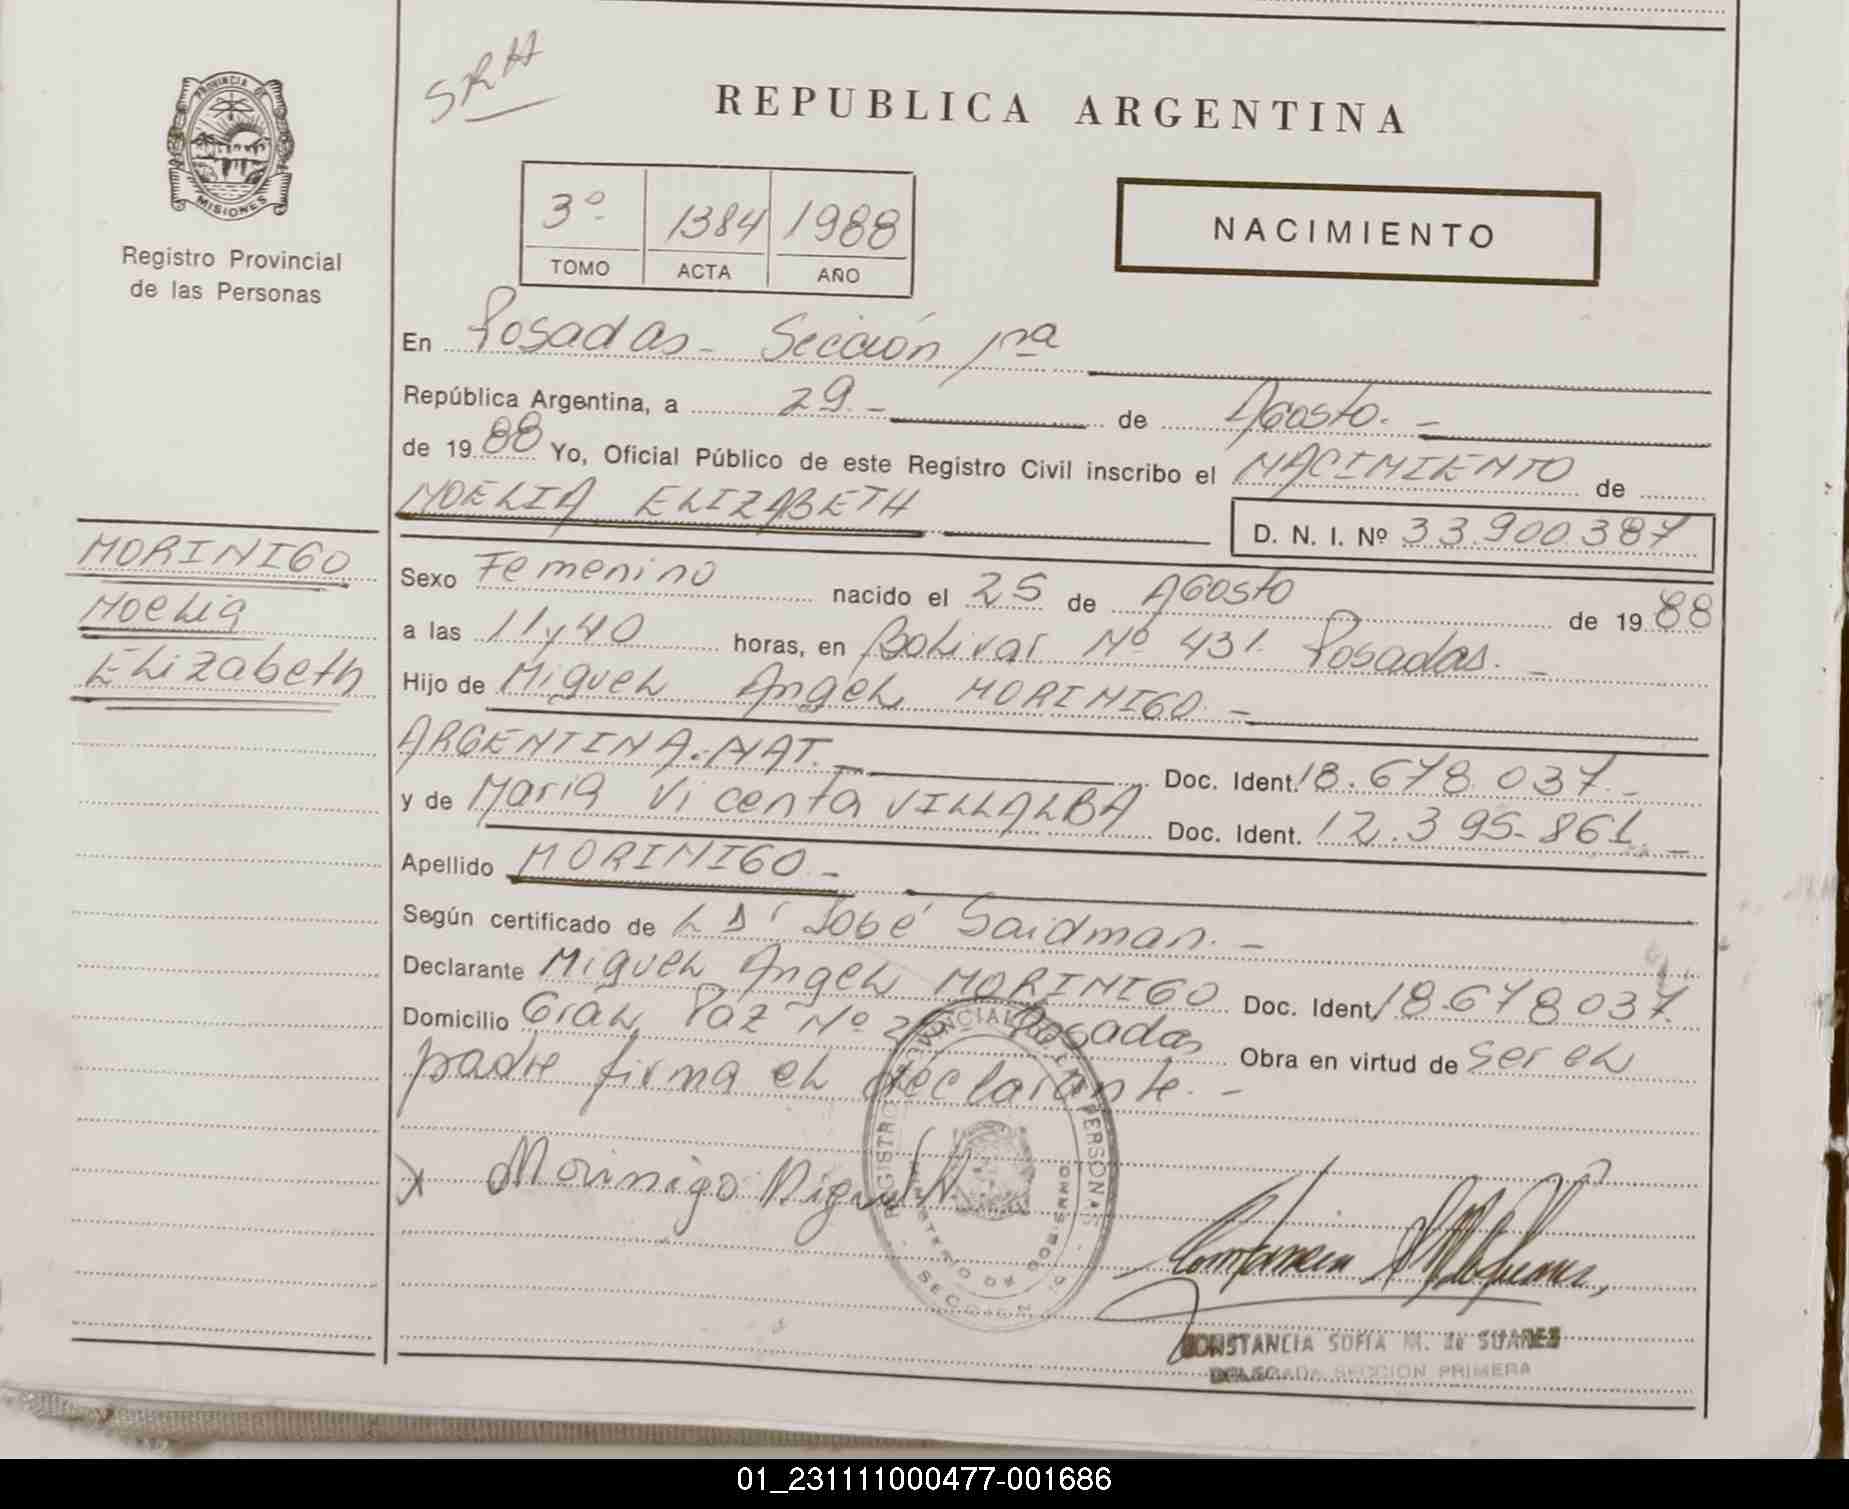 SRH
REPUBLICA ARGENTINA
PROVINCIA DE
MISIONES
Registro Provincial
de las Personas
3º 1384 1988
TOMO ACTA AÑO
NACIMIENTO
En Posadas - Sección 1ra
República Argentina, a 29.- de Agosto. -
de 1988 Yo, Oficial Público de este Registro Civil inscribo el NACIMIENTO de
NOELIA ELIZABETH D. N. I. Nº 33.900.387
MORINIGO
Noelia
Elizabeth
Sexo Femenino nacido el 25 de Agosto de 1988
a las 11y40 horas, en Bolivar Nº 431. Posadas. -
Hijo de Miguel Angel MORINIGO. -
ARGENTINA.NAT. - Doc. Ident. 18.678.037. -
y de Maria Vicenta VILLALBA Doc. Ident. 12.395.861. -
Apellido MORINIGO. -
Según certificado de José Saidman. -
Declarante Miguel Angel MORINIGO Doc. Ident. 18.678.037.
Domicilio Gral Paz Nº Posadas Obra en virtud de ser el
padre firma el declarante. -
x Morinigo Miguel A.
REGISTRO PROVINCIAL DE LAS PERSONAS
MINISTERIO DE GOBIERNO
SECCION
CONSTANCIA SOFIA M. de SUARES
DELEGADA SECCION PRIMERA
01_231111000477-001686